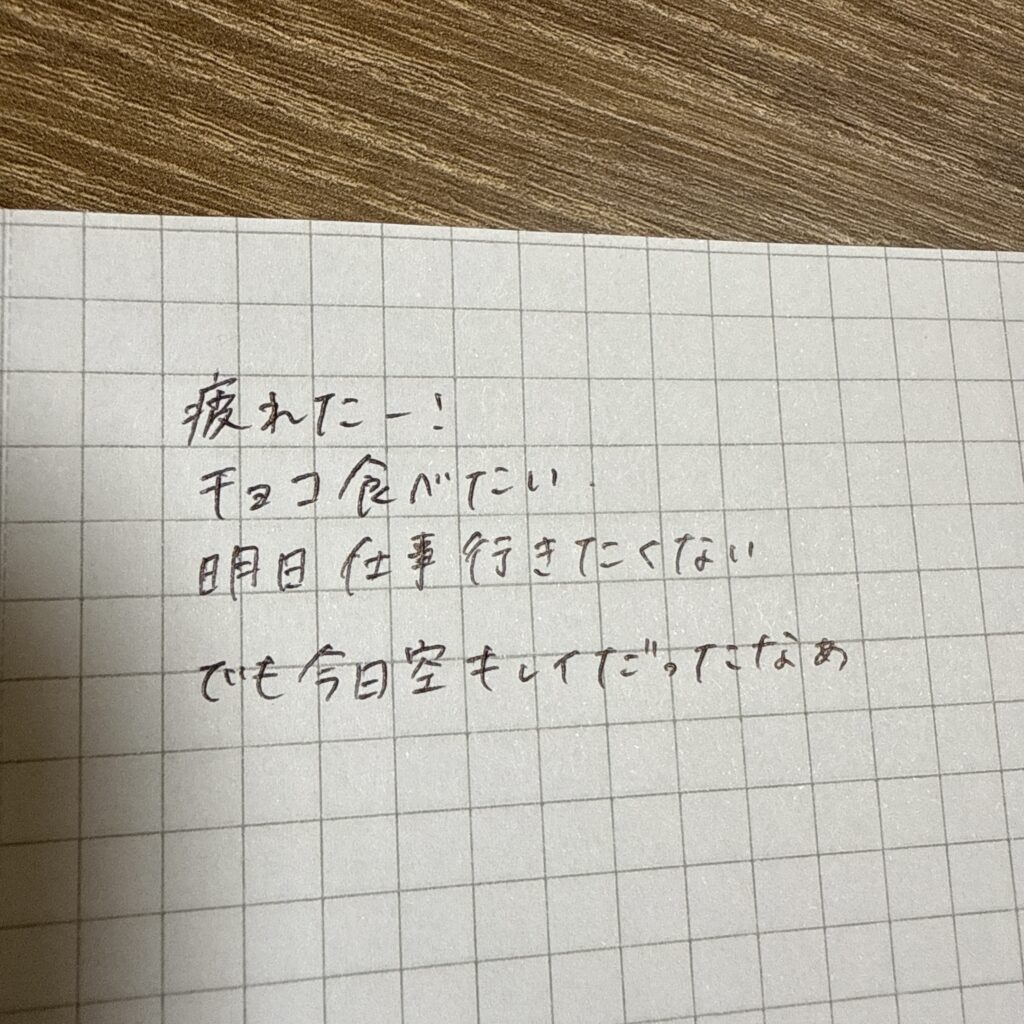 疲れたー!
チョコ食べたい
明日仕事行きたくない
でも今日空キレイだったなぁ